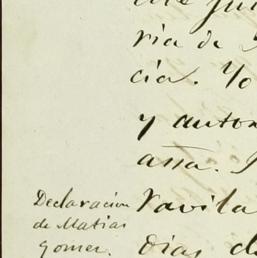 ria de
cia. Yo
y auton
assa.
Declaracion
de Matias
gomez.
ravila
dias de